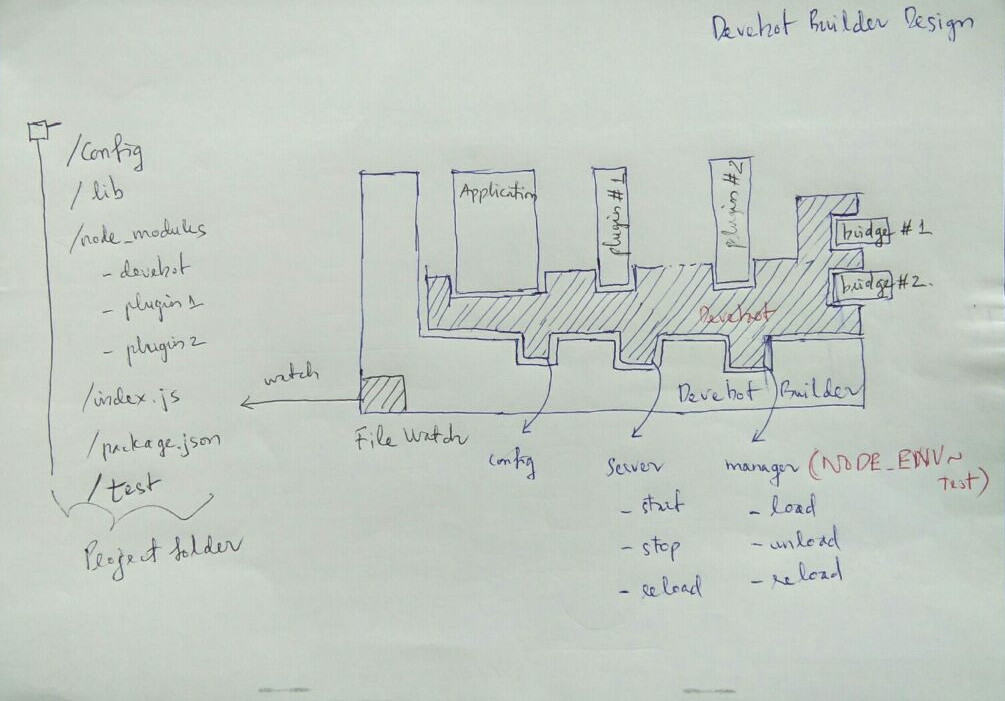 Devebot Builder Design
/config
/lib
/node_modules
- devebot
- plugin 1
- plugin 2
/index.js
/package.json
/test
Project folder
watch
File Watch
Application
plugin #1
plugin #2
bridge #1
bridge #2.
Devebot
Devebot Builder
config
Server
- start
- stop
- reload
manager (NODE_ENV~
test)
- load
- unload
- reload